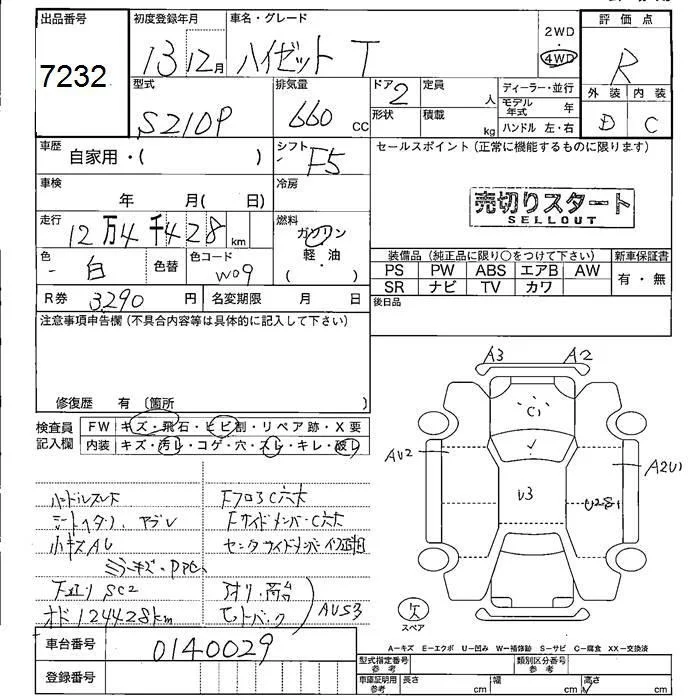 出品番号 初度登録年月 車名・グレード 2WD 評価点
7232 13 12月 ハイゼット T ・ 4WD R
型式 排気量 ドア 定員 ディーラー・並行 外装 内装
S210P 660 cc 2 人 モデル年式 年 D C
形状 積載 kg ハンドル 左・右
車歴 自家用・( ) シフト F5 セールスポイント(正常に機能するものに限ります)
車検 年 月( 日) 冷房
売切りスタート
SELLOUT
走行 12万4千428km 燃料 ガソリン
軽・油
色 白 色替 色コード W09
装備品(純正品に限り○をつけて下さい) 新車保証書
PS PW ABS エアB AW 有・無
SR ナビ TV カワ
R券 3290円 名変期限 月 日 後日品
注意事項申告欄(不具合内容等は具体的に記入して下さい)
修復歴 有 (箇所 )
検査員記入欄 FW キズ・飛石・ヒビ割・リペア跡・X要
内装 キズ・汚レ・コゲ・穴・スレ・キレ・破レ
A3 A2
C1
AU2 A2U1
U3
ハンドルスレ FフロアC穴大
FサイドメンバーC穴大
小キズAU センタサイドメンバー
SC2 アオリ・荷台
オド124428km AUS3
欠
スペア
車台番号 0140029
登録番号
A－キズ E－エクボ U－凹み W－補修跡 S－サビ C－腐食 XX－交換済
型式指定番号 参考 類別区分番号 参考
車庫証明用 参考 長さ cm 幅 cm 高さ cm